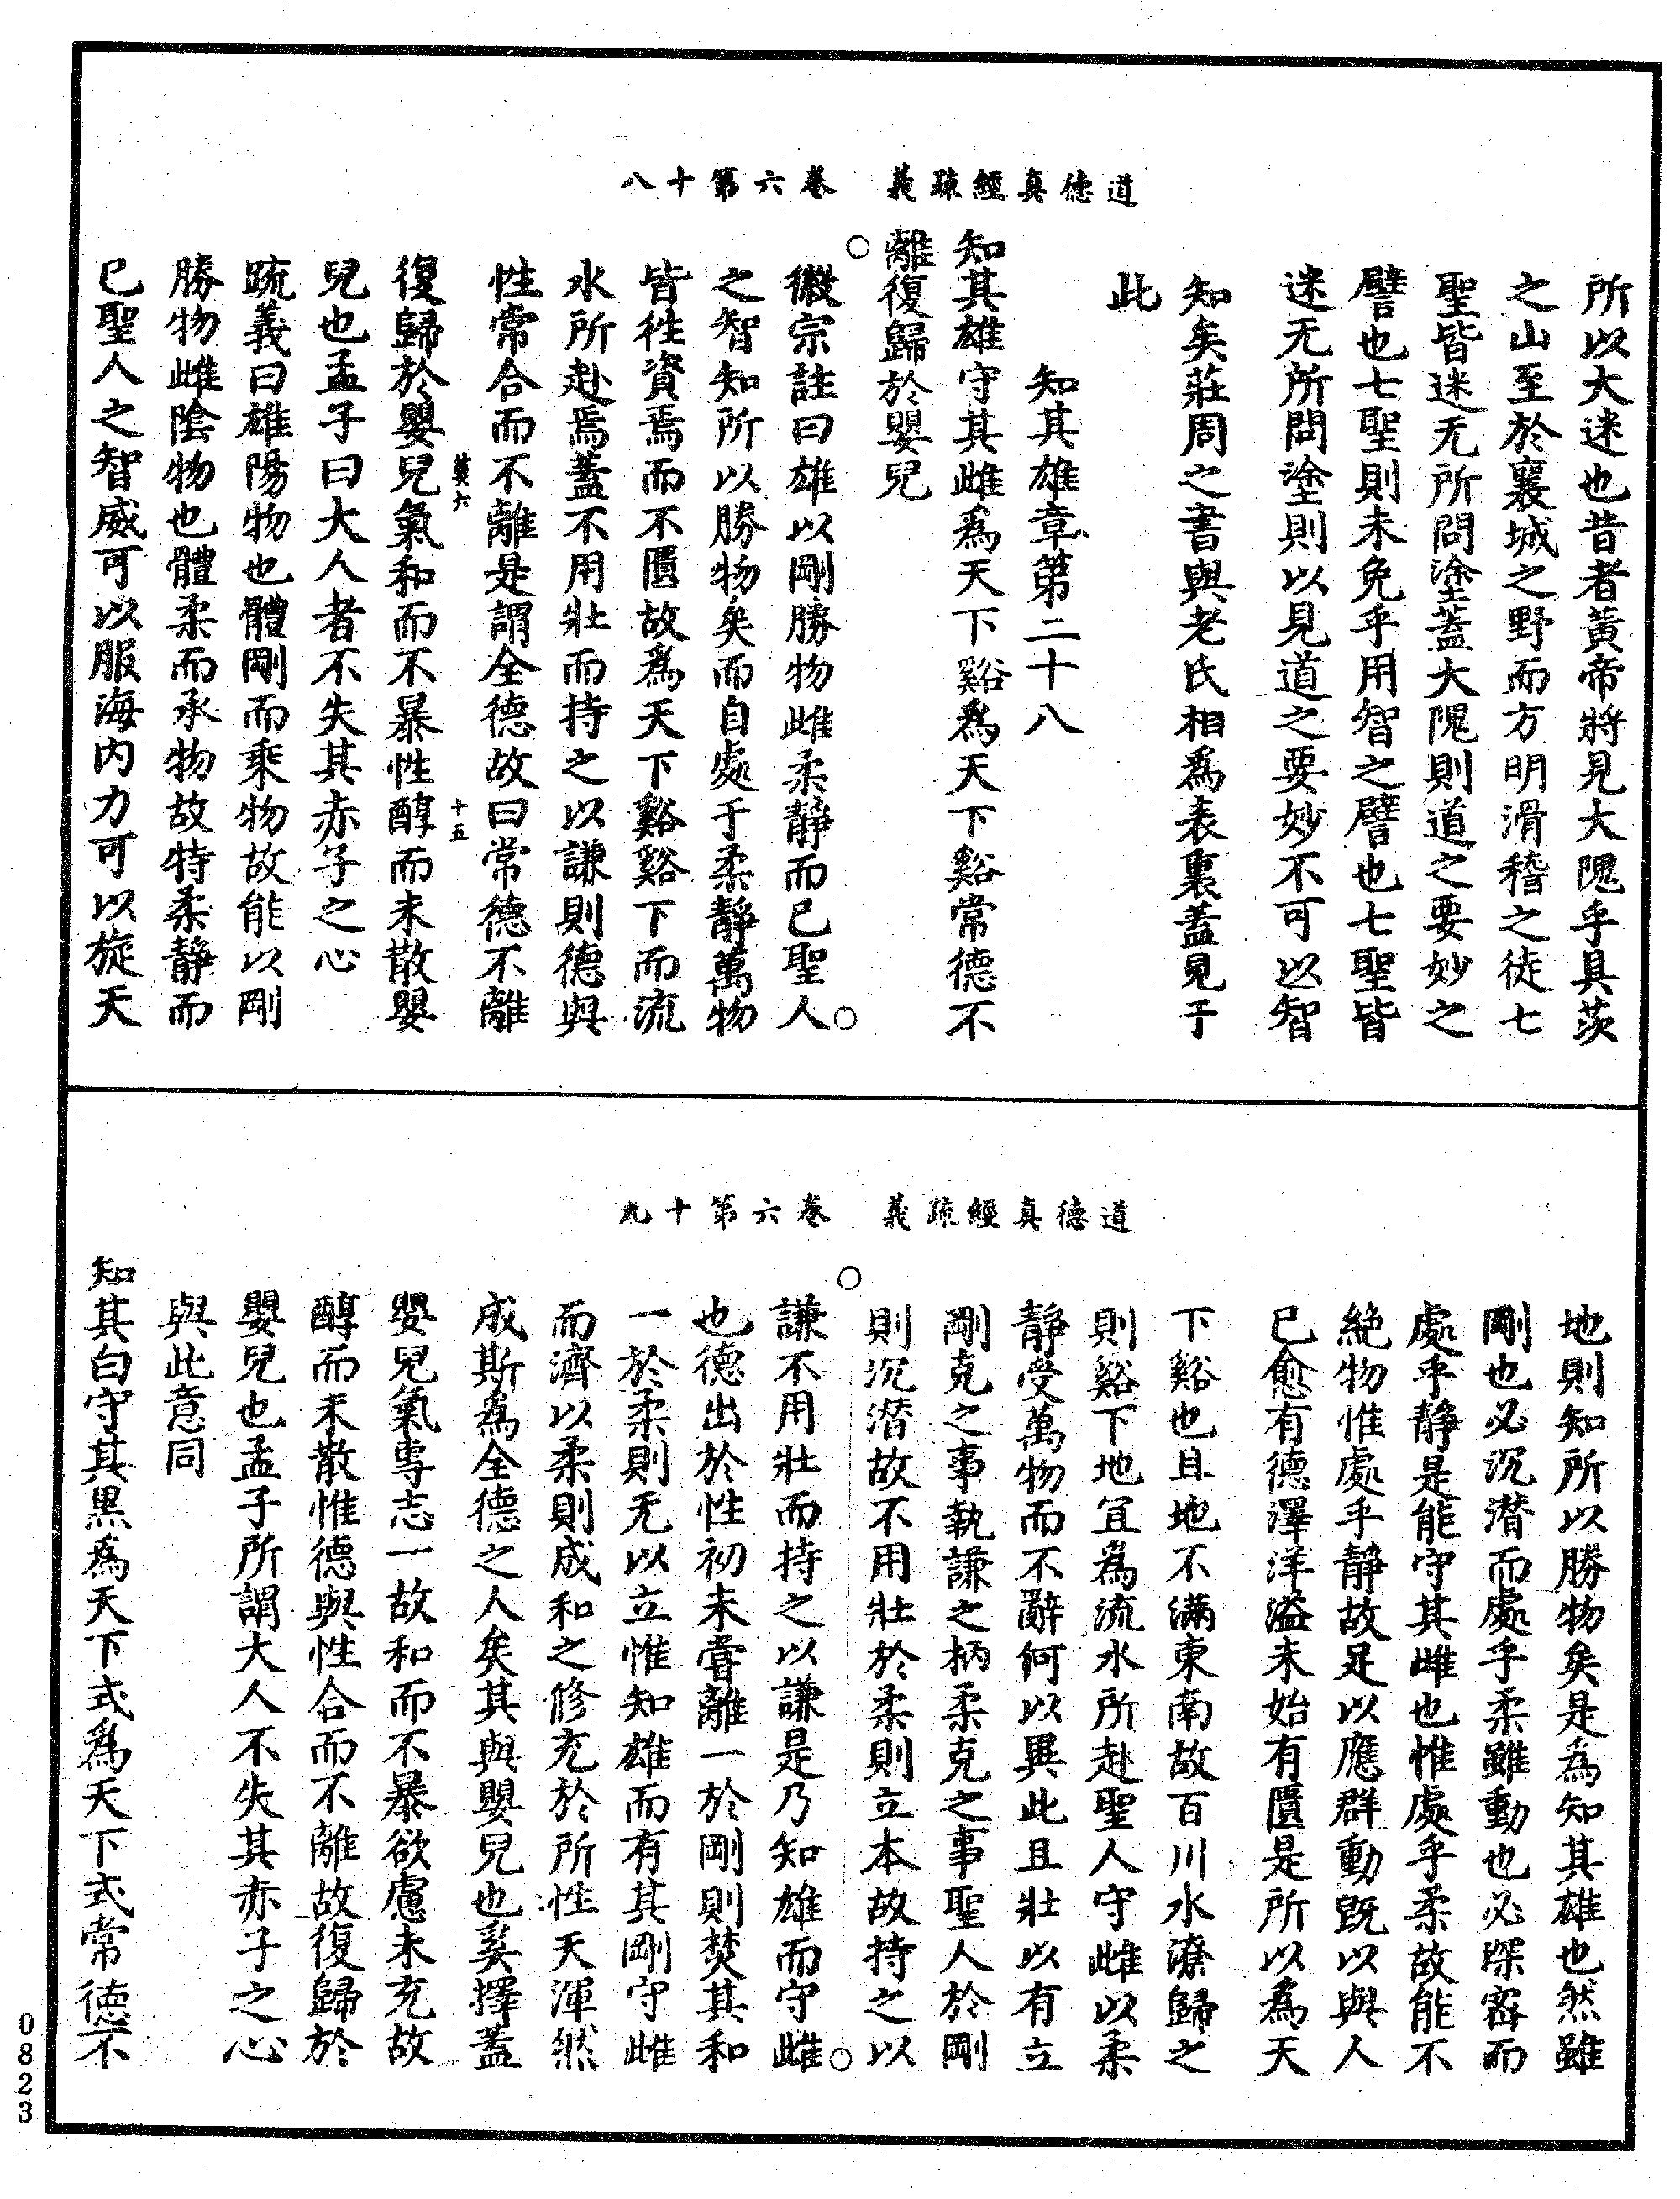 道德真經疏義　卷六第十八
所以大迷也昔者黃帝將見大隗乎具茨
之山至於襄城之野而方明滑稽之徒七
聖皆迷无所問塗蓋大隗則道之要妙之
譬也七聖則未免乎用智之譬也七聖皆
迷无所問塗則以見道之要妙不可以智
知矣莊周之書與老氏相為表裏蓋見于
此
知其雄章第二十八
知其雄守其雌為天下谿為天下谿常德不
離復歸於嬰兒
徽宗註曰雄以剛勝物雌柔靜而已聖人
之智知所以勝物矣而自處于柔靜萬物
皆往資焉而不匱故為天下谿谿下而流
水所赴焉蓋不用壯而持之以謙則德與
性常合而不離是謂全德故曰常德不離
莫六　十五
復歸於嬰兒氣和而不暴性醇而未散嬰
兒也孟子曰大人者不失其赤子之心
疏義曰雄陽物也體剛而乘物故能以剛
勝物雌陰物也體柔而承物故特柔靜而
已聖人之智威可以服海內力可以旋天
道德真經疏義　卷六第十九
地則知所以勝物矣是為知其雄也然雖
剛也必沉潛而處乎柔雖動也必深密而
處乎靜是能守其雌也惟處乎柔故能不
絕物惟處乎靜故足以應群動既以與人
已愈有德澤洋溢未始有匱是所以為天
下谿也且地不滿東南故百川水潦歸之
則谿下地宜為流水所赴聖人守雌以柔
靜受萬物而不辭何以異此且壯以有立
剛克之事執謙之柄柔克之事聖人於剛
則沉潛故不用壯於柔則立本故持之以
謙不用壯而持之以謙是乃知雄而守雌
也德出於性初未嘗離一於剛則焚其和
一於柔則无以立惟知雄而有其剛守雌
而濟以柔則成和之修充於所性天渾然
成斯為全德之人矣其與嬰兒也奚擇蓋
嬰兒氣專志一故和而不暴欲慮未充故
醇而未散惟德與性合而不離故復歸於
嬰兒也孟子所謂大人不失其赤子之心
與此意同
知其白守其黑為天下式為天下式常德不
0823